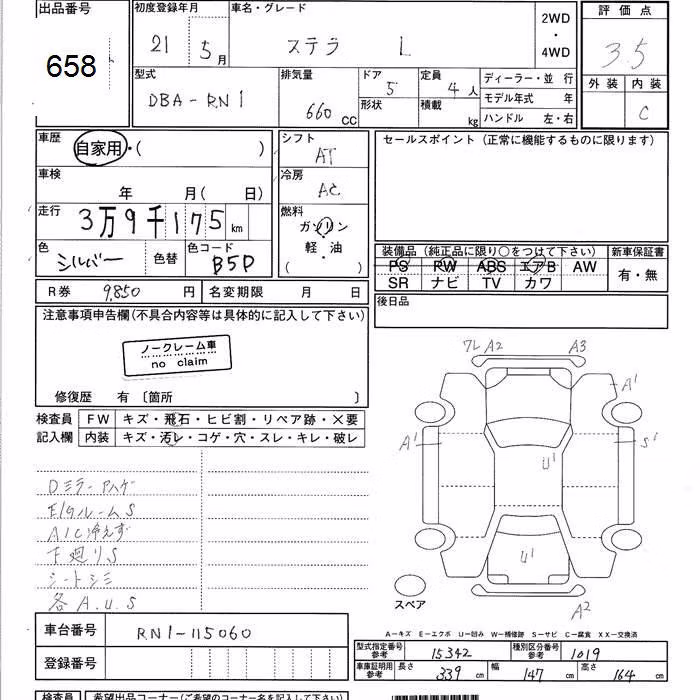 出品番号
658
初度登録年月
21 5月
車名・グレード
ステラ L
2WD
・
4WD
評価点
3.5
外装 内装
C
型式
DBA-RN1
排気量
660 CC
ドア 5
形状
定員 4人
積載 kg
ディーラー・並行
モデル年式 年
ハンドル 左・右
車歴
自家用・( )
車検
年 月( 日)
走行
3万9千175 km
色
シルバー
色替
色コード
B5D
シフト
AT
冷房
AC
燃料
ガソリン
・
軽・油
・
( )
セールスポイント (正常に機能するものに限ります)
装備品 (純正品に限り○をつけて下さい)
PS PW ABS エアB AW
SR ナビ TV カワ
新車保証書
有・無
後日品
R券 9,850 円
名変期限 月 日
注意事項申告欄(不具合内容等は具体的に記入して下さい)
ノークレーム車
no claim
修復歴 有 〔箇所 〕
検査員
記入欄
FW キズ・飛石・ヒビ割・リペア跡・×要
内装 キズ・汚レ・コゲ・穴・スレ・キレ・破レ
Dミラーハゲ
E/GルームS
A/C冷えず
下廻りS
シートシミ
各A.U.S
フレ A2 A3
A1
A1
S1
U1
U1
A2
スペア
A-キズ E-エクボ U-凹み W-補修跡 S-サビ C-腐食 XX-交換済
車台番号
RN1-115060
登録番号
型式指定番号
参考
15342
種別区分番号
参考
1019
車庫証明用
参考
長さ 339 cm
幅 147 cm
高さ 164 cm
検査員
希望出品コーナー(ご希望のコーナー名を記入して下さい)